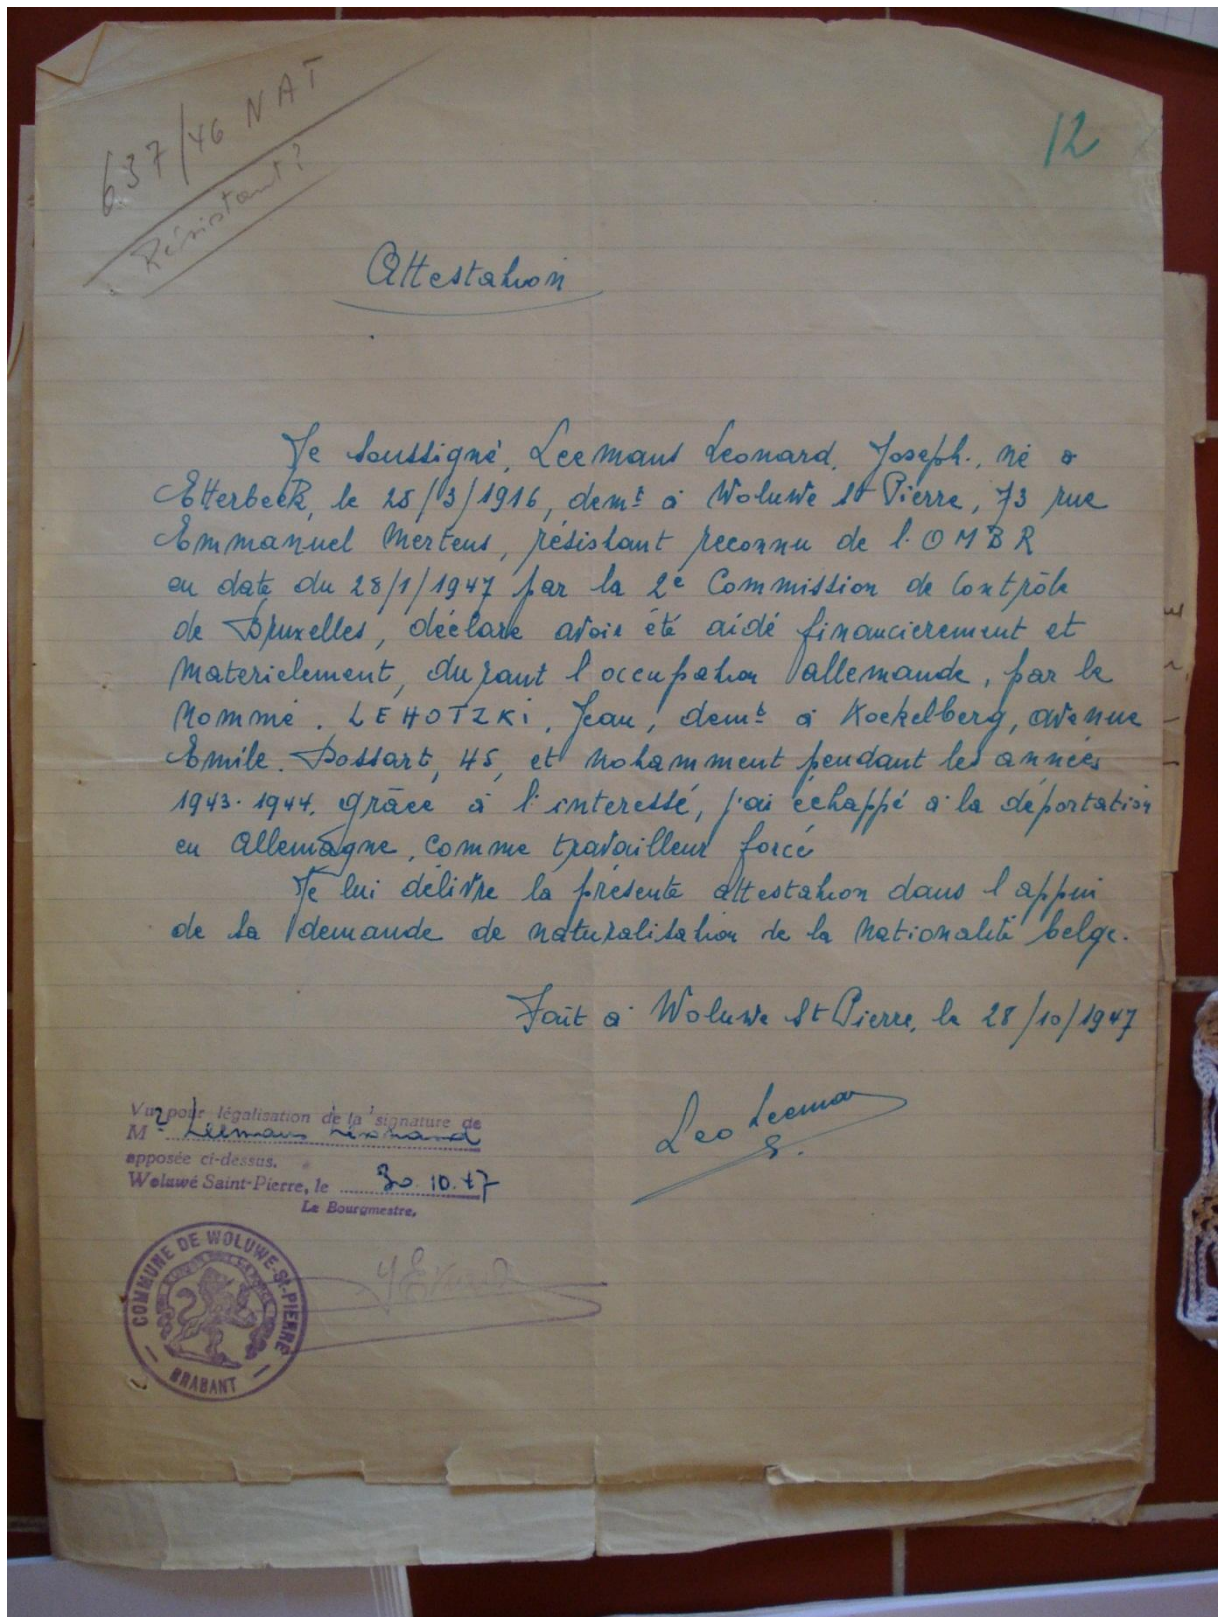 637/46 NAT
Résistant?
12
Attestation
Je soussigné, Leemans Leonard, Joseph., né à
Etterbeek, le 25/3/1916, demt à Woluwe St Pierre, 73 rue
Emmanuel Mertens, résistant reconnu de l'OMBR
en date du 28/1/1947 par la 2e Commission de Contrôle
de Bruxelles, déclare avoir été aidé financierement et
materielement, durant l'occupation allemande, par le
nommé. LEHOTZKI, Jean, demt à Koekelberg, avenue
Emile. Bossart, 45, et notamment pendant les années
1943-1944. grâce à l'interessé, j'ai échappé à la déportation
en Allemagne, comme travailleur forcé
Je lui délivre la présente attestation dans l'appui
de sa demande de naturalisation de la nationalité belge.
Fait à Woluwe St Pierre, le 28/10/1947
Leo Leemans
Vu pour légalisation de la signature de
Mr Leemans Léonard
apposée ci-dessus.
Woluwé Saint-Pierre, le 30.10.47
Le Bourgmestre,
COMMUNE DE WOLUWE-St-PIERRE
BRABANT